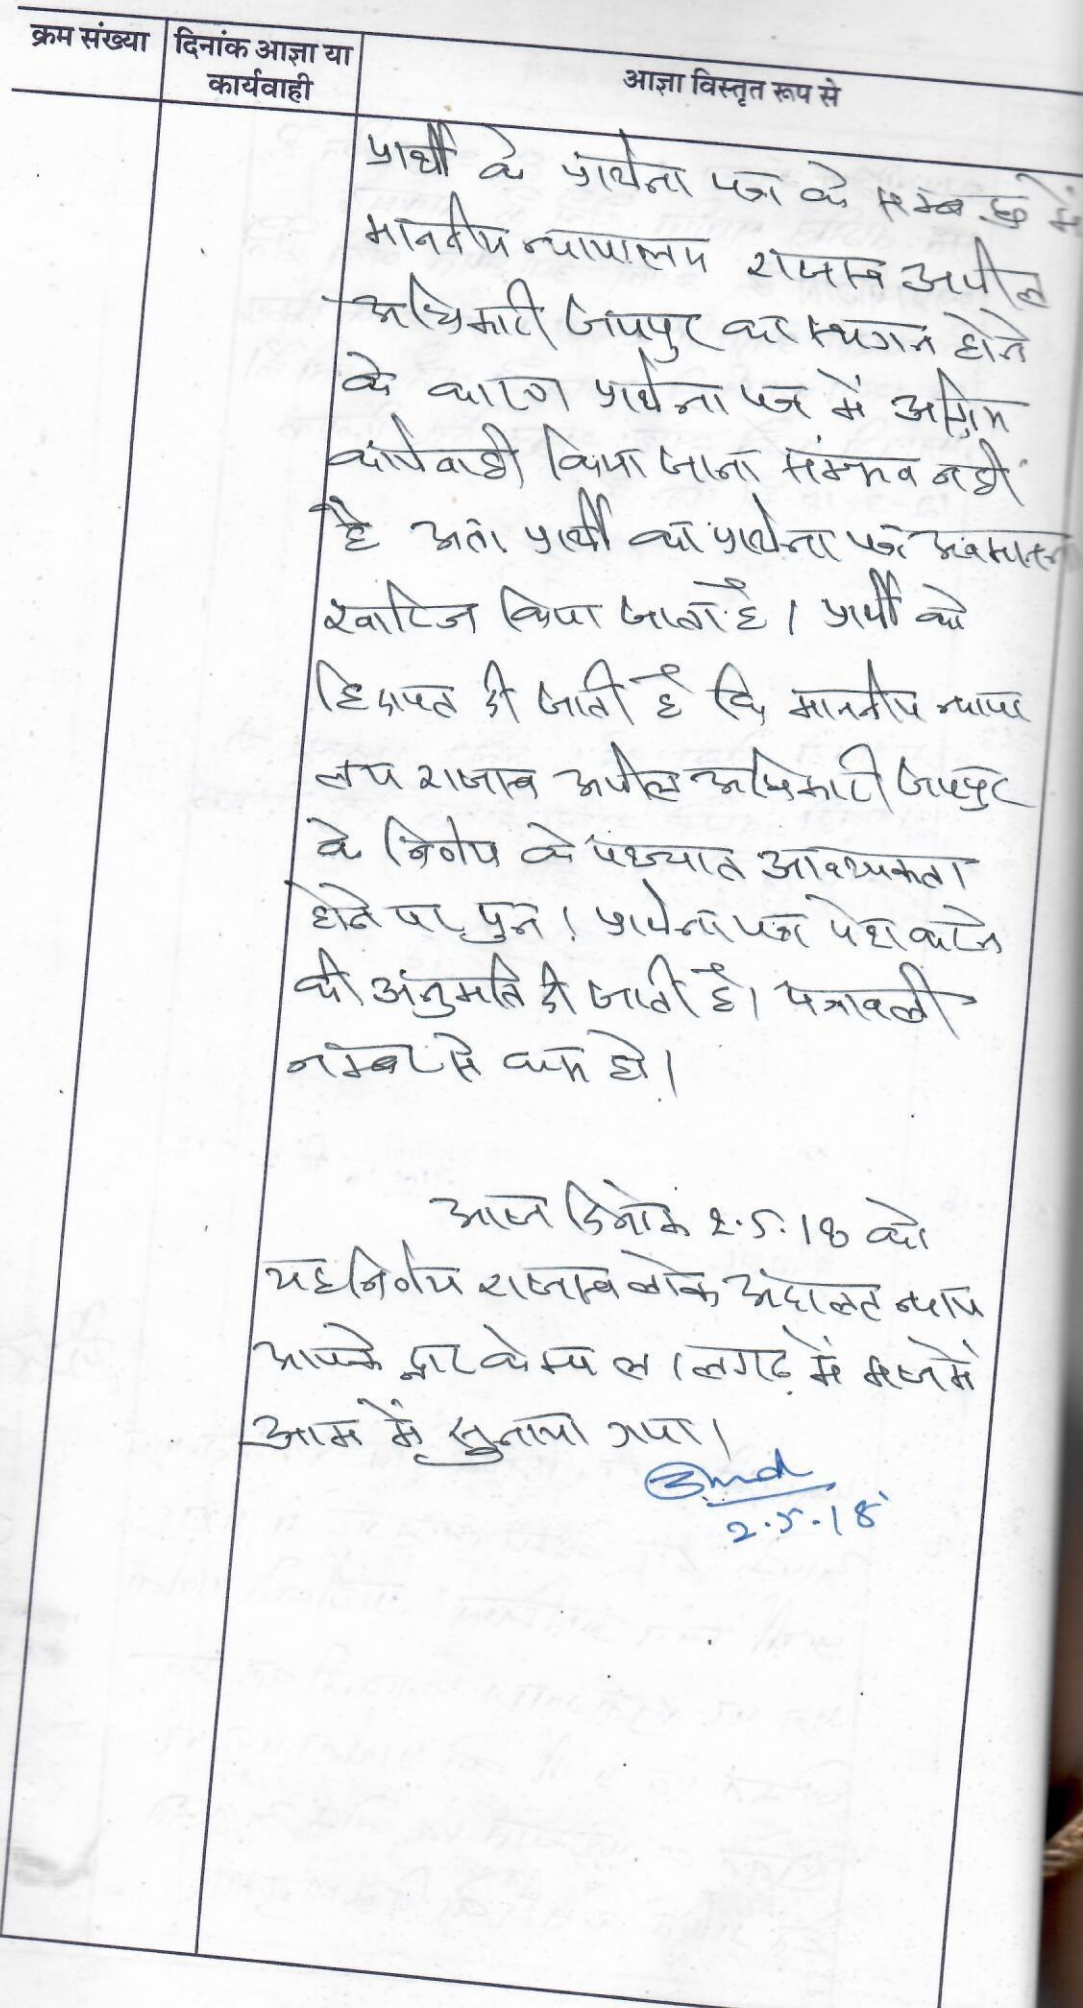 क्रम संख्या
दिनांक आज्ञा या
कार्यवाही
आज्ञा विस्तृत रूप से
प्रार्थी के प्रार्थना पत्र के सम्बन्ध में
माननीय न्यायालय राजस्व अपील
अधिकारी जयपुर का स्थगन होने
के कारण प्रार्थना पत्र में अग्रिम
कार्यवाही किया जाना सम्भव नहीं
है अतः प्रार्थी का प्रार्थना पत्र
खारिज किया जाता है। प्रार्थी को
हिदायत दी जाती है कि माननीय न्याया
लय राजस्व अपील अधिकारी जयपुर
के निर्णय के पश्च्यात आवश्यकता
होने पर पुनः प्रार्थना पत्र पेश करने
की अनुमति दी जाती है। पत्रावली
नम्बर से कम हो।
आज दिनांक 2.5.18 को
यह निर्णय राजस्व लोक अदालत न्याय
आपके द्वार केम्प लालगढ़ में मजमे
आम में सुनाया गया।
2.5.18